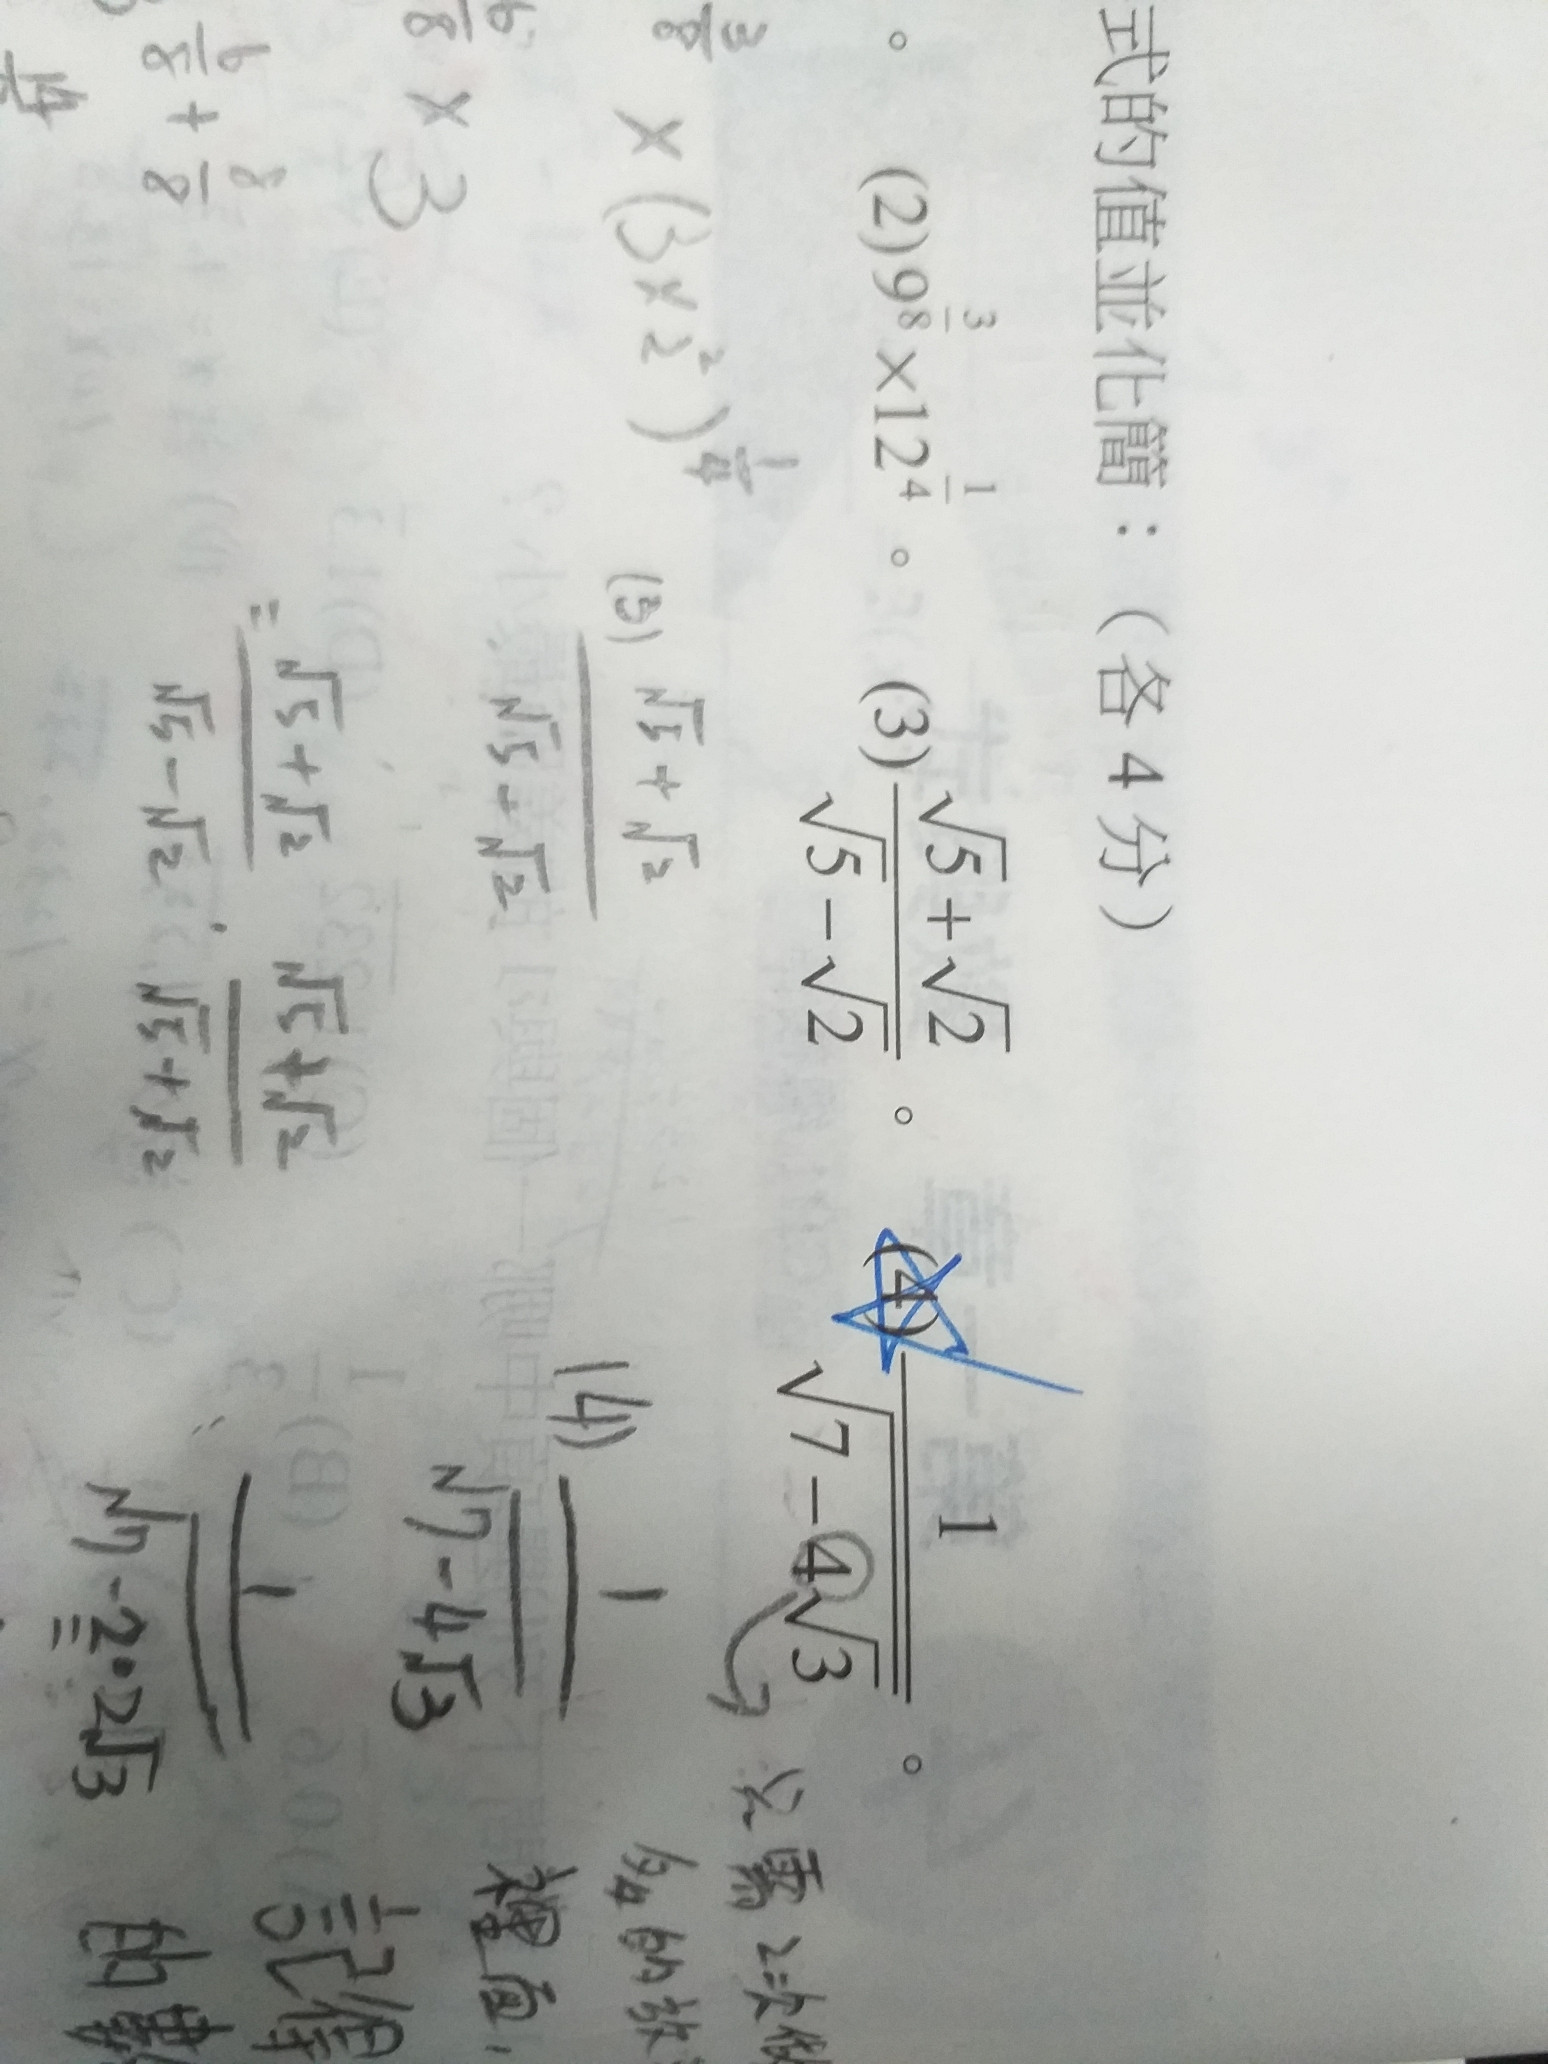 式的值並化簡：（各4分）
。 (2) 9^{3/8}×12^{1/4}。 (3) (√5+√2)/(√5−√2)。 (4) 1/√(7−4√3)。
3/8 ×(3×2²)^{1/4}
6/8 × 3
6/8 + 8/8
14
(3) (√5+√2)/(√5−√2)
= (√5+√2)/(√5−√2) · (√5+√2)/(√5+√2)
(4) 1/√(7−4√3)
1/√(7−2·2√3)
需2次
的放
裡面,
記得
的數